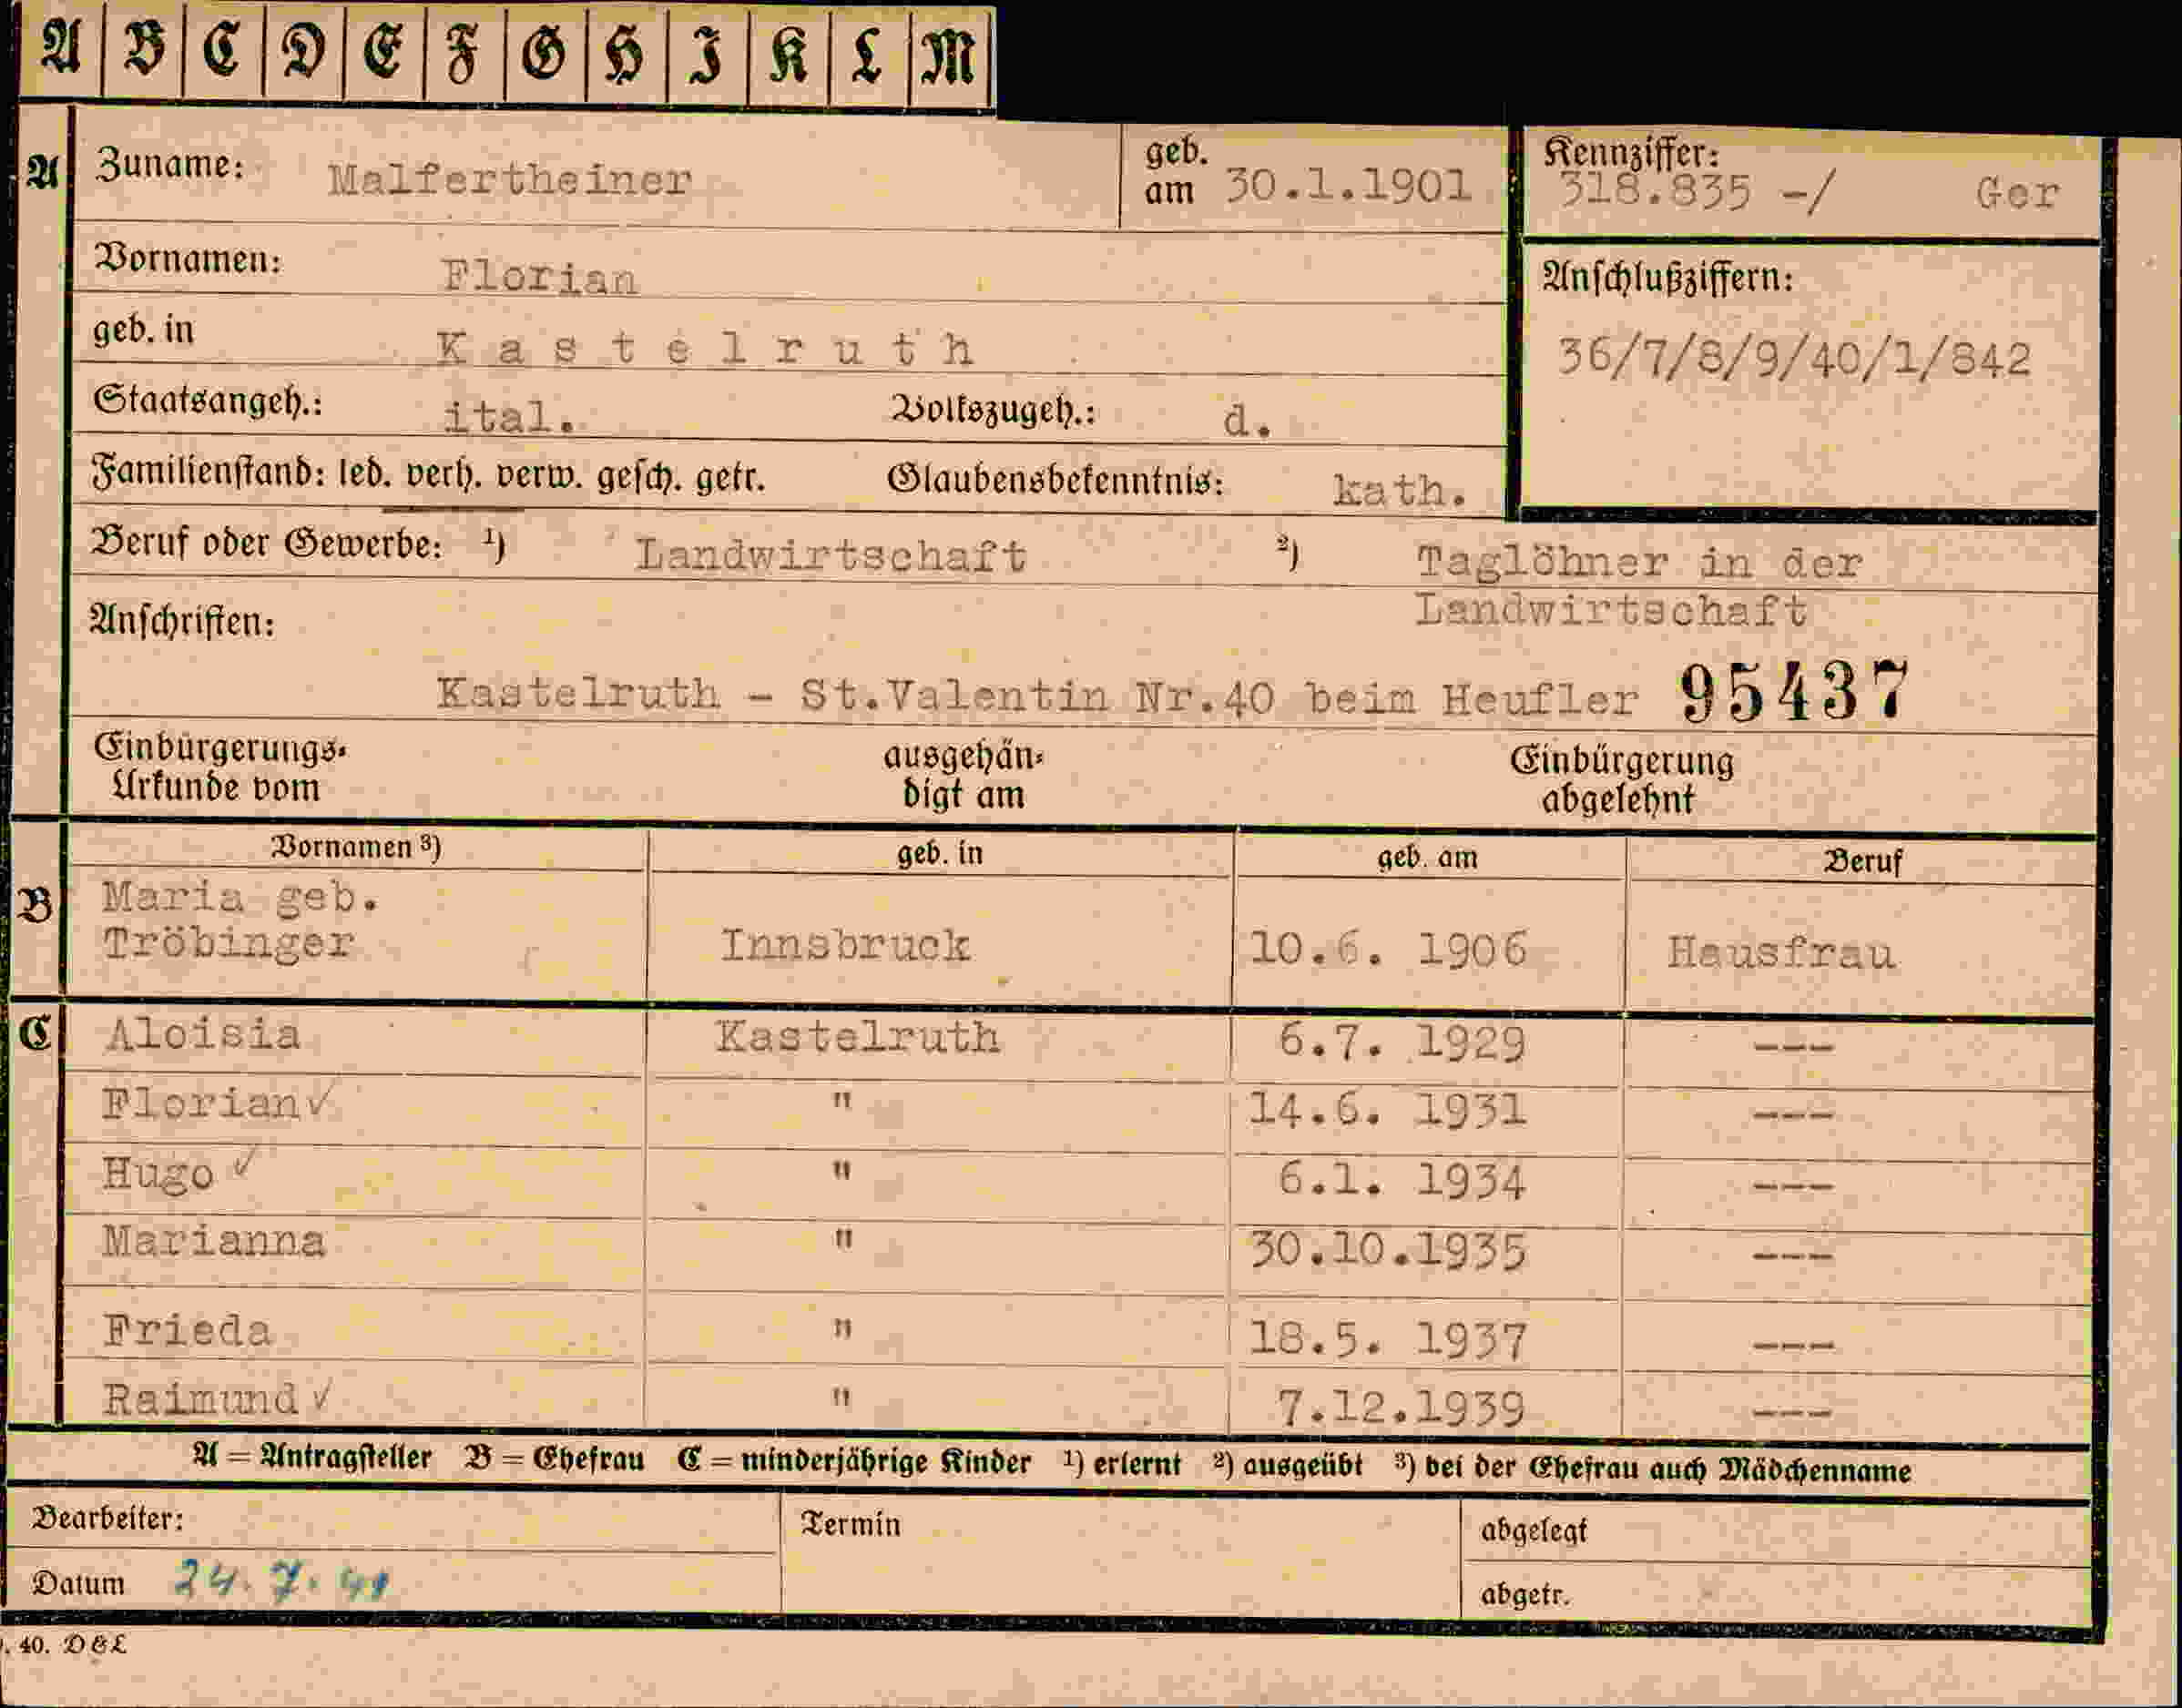 A B C D E F G H I K L M
A Zuname: Malfertheiner geb. am 30.1.1901 Kennziffer: 318.835 -/ Ger
Vornamen: Florian Anschlußziffern:
geb. in Kastelruth 36/7/8/9/40/1/842
Staatsangeh.: ital. Volkszugeh.: d.
Familienstand: led. verh. verw. gesch. getr. Glaubensbekenntnis: kath.
Beruf oder Gewerbe: 1) Landwirtschaft 2) Taglöhner in der
Landwirtschaft
Anschriften:
Kastelruth - St.Valentin Nr.40 beim Heufler 95437
Einbürgerungs- ausgehän- Einbürgerung
Urkunde vom digt am abgelehnt
Vornamen 3) geb. in geb. am Beruf
B Maria geb.
Tröbinger Innsbruck 10.6. 1906 Hausfrau
C Aloisia Kastelruth 6.7. 1929 ---
Florian ✓ " 14.6. 1931 ---
Hugo ✓ " 6.1. 1934 ---
Marianna " 30.10.1935 ---
Frieda " 18.5. 1937 ---
Raimund ✓ " 7.12.1939 ---
A = Antragsteller B = Ehefrau C = minderjährige Kinder 1) erlernt 2) ausgeübt 3) bei der Ehefrau auch Mädchenname
Bearbeiter: Termin abgelegt
Datum 24.7.41 abgetr.
. 40. D&L